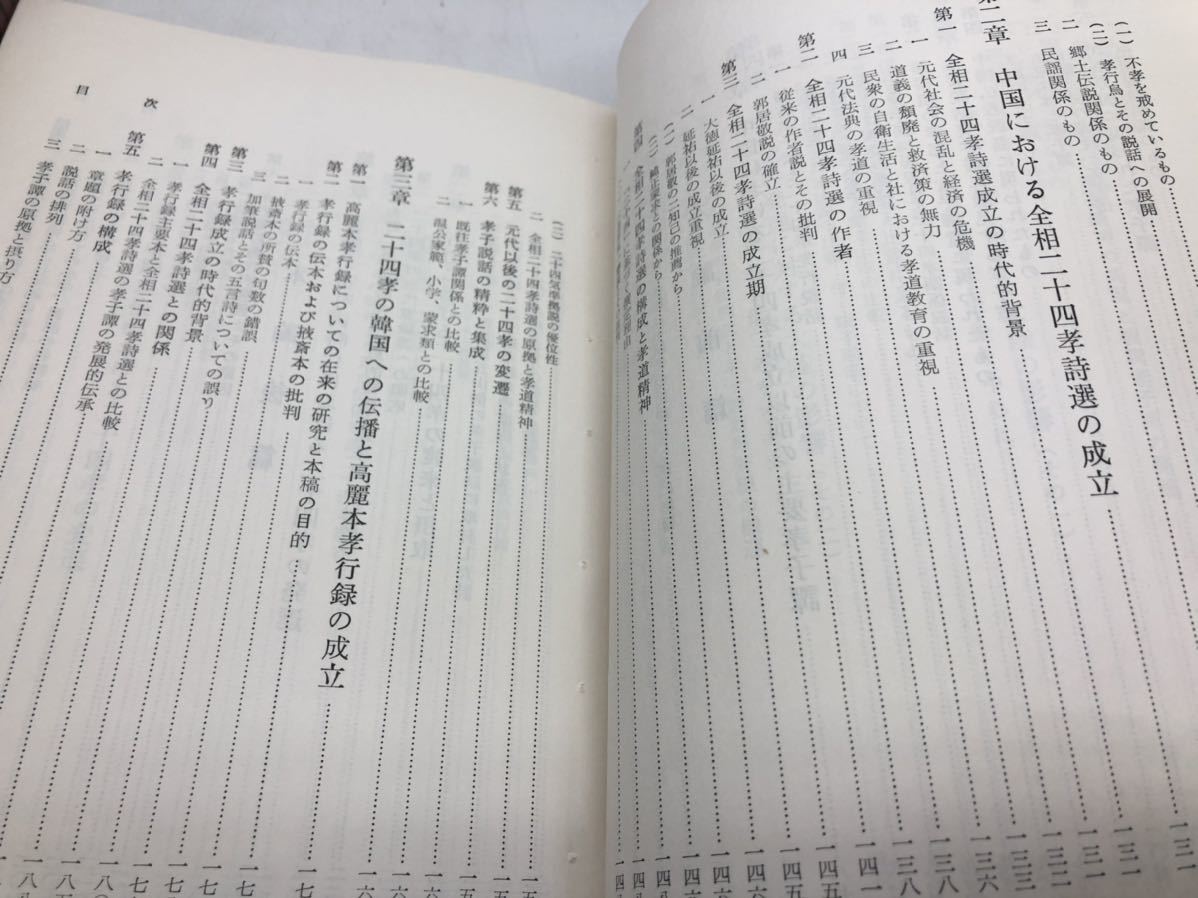 (一) 不孝を戒めているもの
(二) 孝行鳥とその説話への展開 一三一
二 郷土伝説関係のもの 一三一
三 民謡関係のもの 一三二
第二章 中国における全相二十四孝詩選の成立 一三三
第一 全相二十四孝詩選成立の時代的背景 一三三
一 元代社会の混乱と経済の危機 一三六
二 道義の頽廃と救済策の無力 一三八
三 民衆の自衛生活と社における孝道教育の重視 一三八
四 元代法典の孝道の重視 一四一
第二 全相二十四孝詩選の作者
一 従来の作者説とその批判
二 郭居敬説の確立
第三 全相二十四孝詩選の成立期
一 大徳延祐以後の成立
二 延祐以後の成立重視
(一) 郭居敬の二知己の推薦から
(二)
第四 全相二十四孝詩選の構成と孝道精神
一
(二) 二十四気準拠説の優位性
二 全相二十四孝詩選の原拠と孝道精神
第五 元代以後の二十四孝の変遷
第六 孝子説話の精粋と集成
一 既往孝子譚関係との比較
二 温公家範、小学、蒙求類との比較
第三章 二十四孝の韓国への伝播と高麗本孝行録の成立
第一 高麗本孝行録についての在来の研究と本稿の目的
第二 孝行録の伝本および掖斎本の批判
一 孝行録の伝本
二 掖斎本の所賛の句数の錯誤
三 加筆説話とその五言詩についての誤り
第三 孝行録成立の時代的背景
第四 全相二十四孝詩選との関係
一 孝行録主要本と全相二十四孝詩選との比較
二 全相二十四孝詩選の孝子譚の発展的伝承
第五 孝行録の構成
一 章題の附け方
二 説話の排列
三 孝子譚の原拠と摂り方
目次